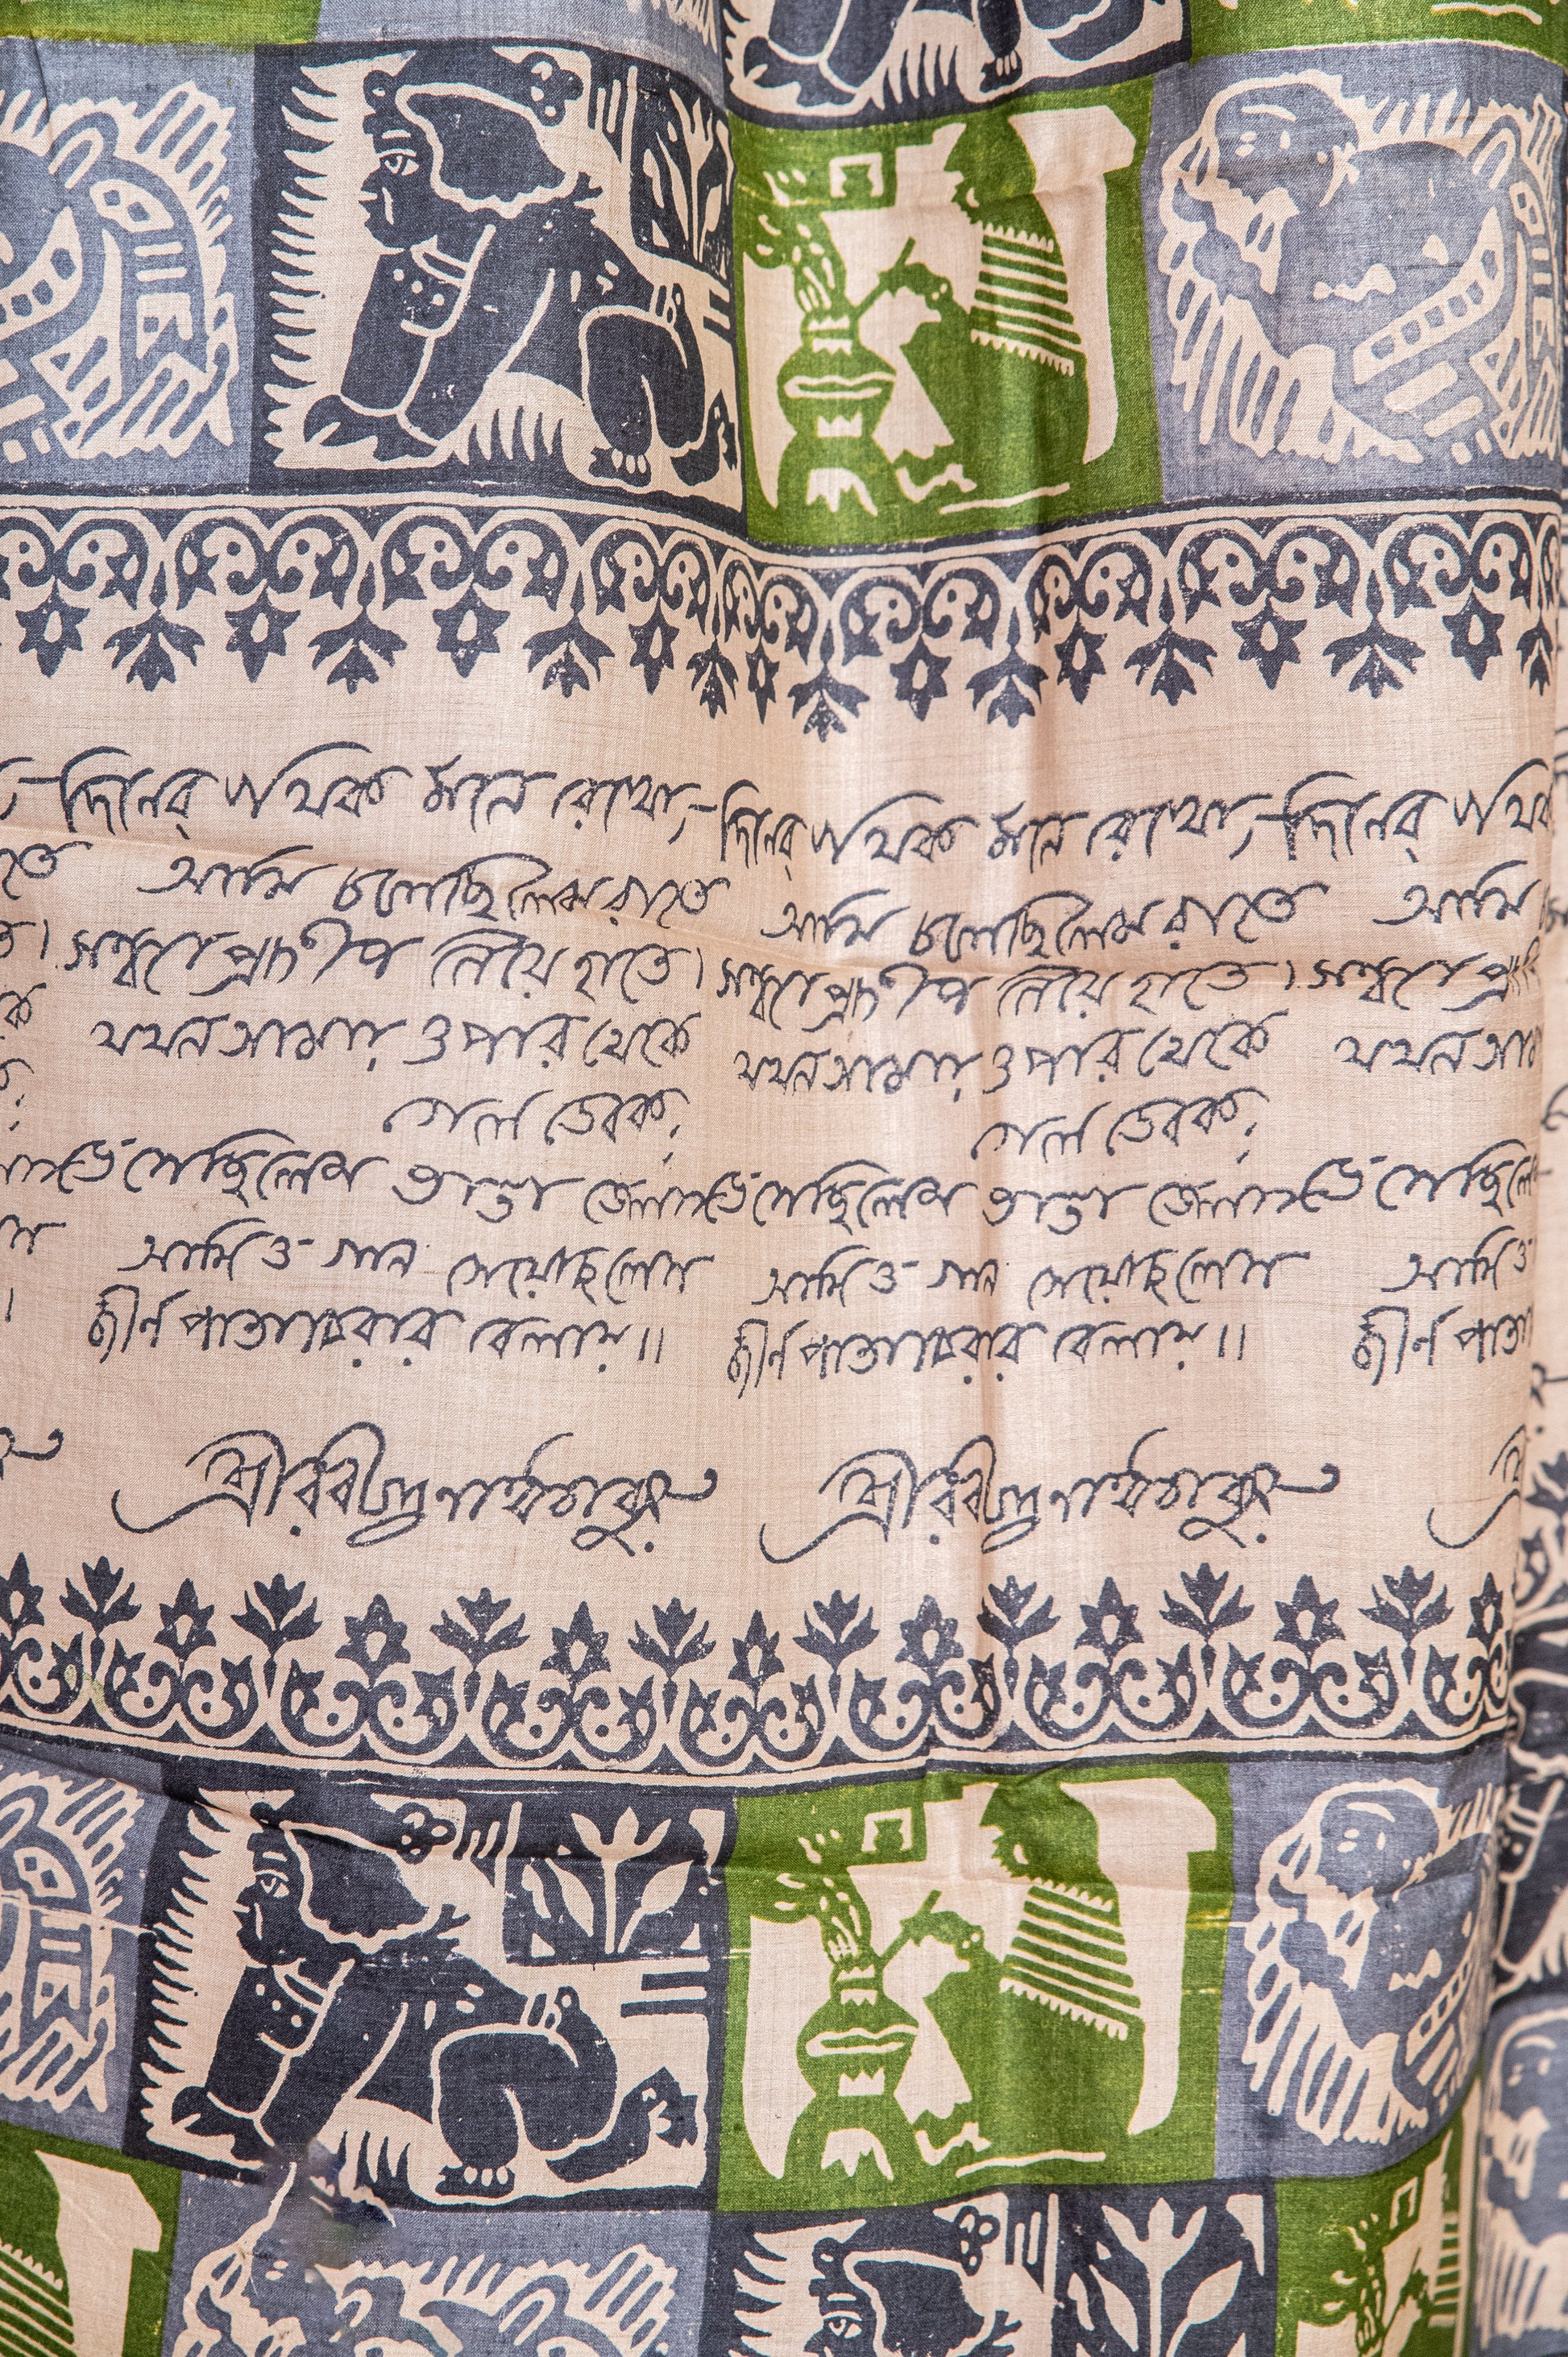 দিনের পথিক মনে রেখো,— দিনের পথিক মনে রেখো,— দিনের পথিক
আমি চলেছিলেম রাতে আমি চলেছিলেম রাতে আমি
সন্ধ্যাপ্রদীপ নিয়ে হাতে। সন্ধ্যাপ্রদীপ নিয়ে হাতে। সন্ধ্যাপ্রদীপ
যখন আমায় ওপার থেকে যখন আমায় ওপার থেকে যখন আমায়
গেল ডেকে, গেল ডেকে,
ভেসেছিলেম ভাঙা ভেলায় ভেসেছিলেম ভাঙা ভেলায় ভেসেছিলেম
আমি ও গান গেয়েছিলেম আমি ও গান গেয়েছিলেম আমি ও
জীর্ণ পাতা ঝরার বেলায়॥ জীর্ণ পাতা ঝরার বেলায়॥ জীর্ণ পাতা
শ্রীরবীন্দ্রনাথ ঠাকুর শ্রীরবীন্দ্রনাথ ঠাকুর